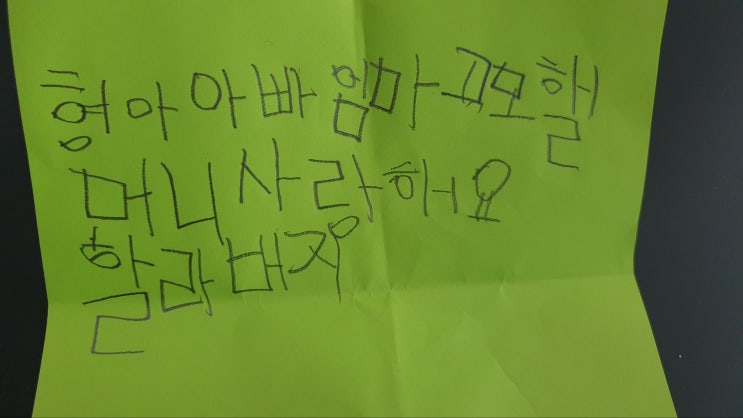 형아 아빠 엄마 고모 할
머니 사라해요
할라버지